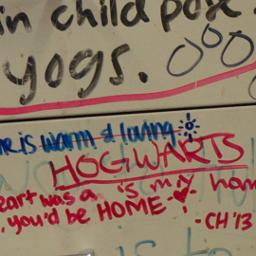 in child pose.
yogs.
me is warm & loving
HOGWARTS
is my hom
eart was a
, you'd be HOME
- CH '13